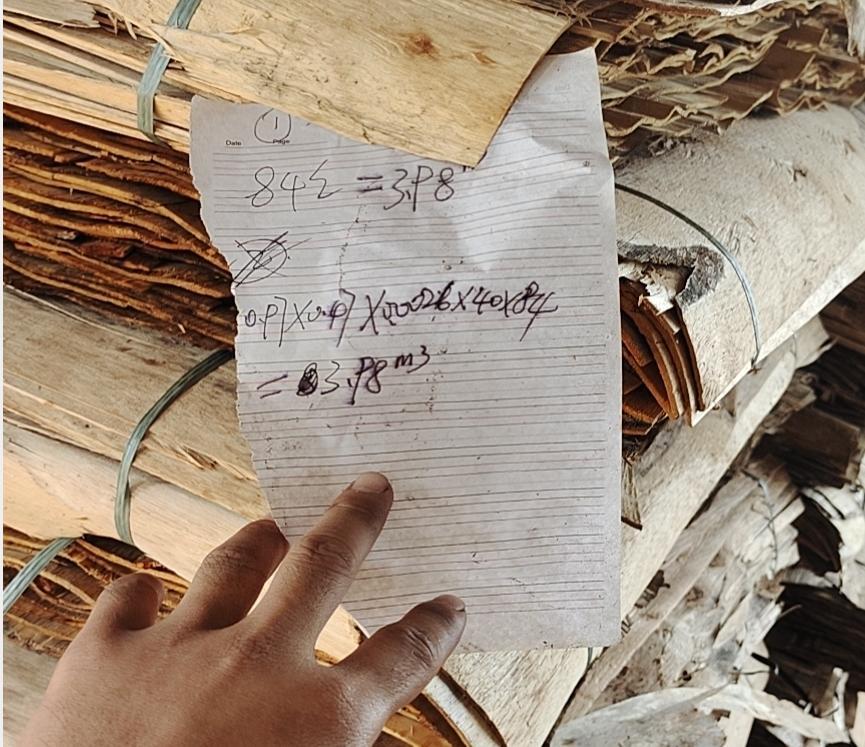 ①
Date Page
84 = 3.98
0.97 X 0.47 X 0.0026 X 40 X 84
= 3.98 m3